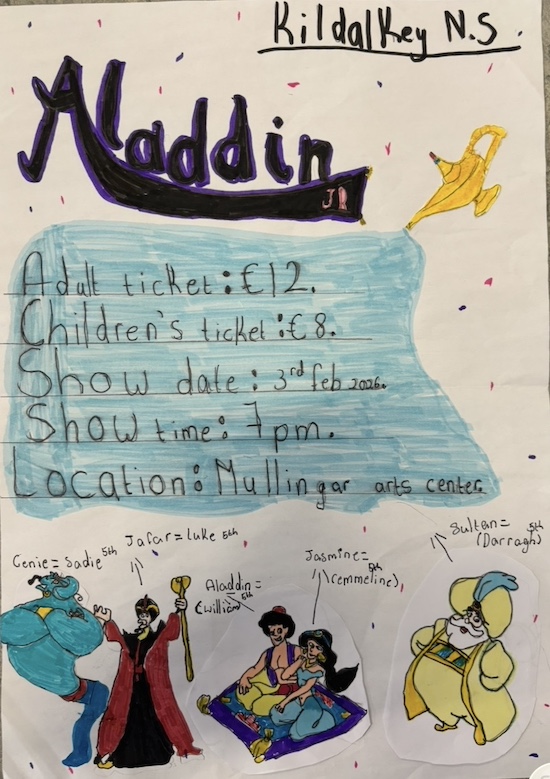 Kildalkey N.S
Aladdin
JR
Adult ticket: €12.
Children's ticket: €8.
Show date: 3rd feb 2026.
Show time: 7pm.
Location: Mullingar arts center.
Genie = Sadie 5th
Jafar = Luke 5th
Aladdin = 5th
(William)
Jasmine = 5th
(emmeline)
Sultan = 5th
(Darragh)